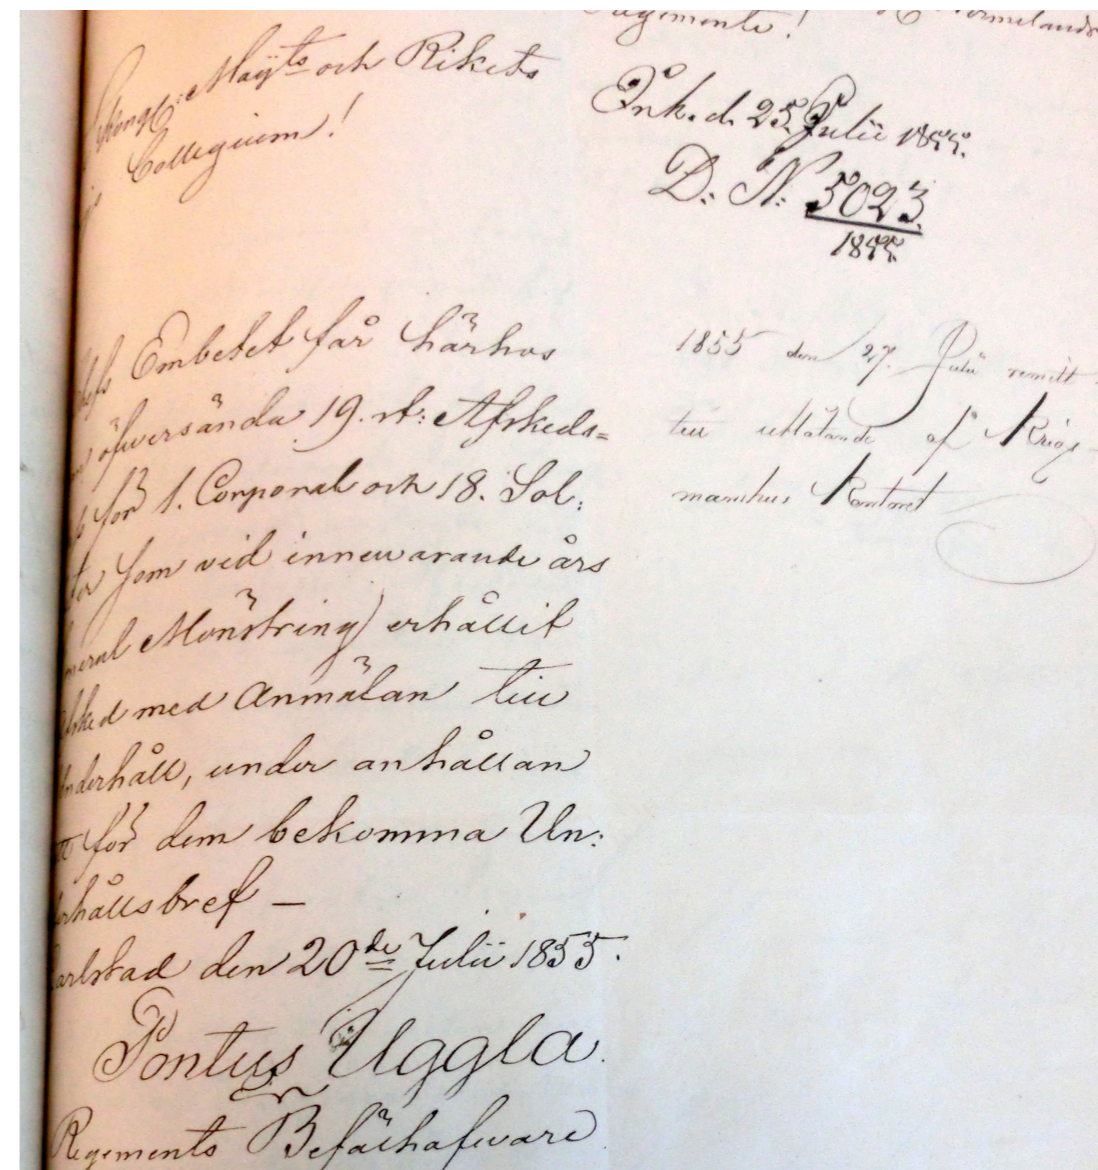 Regemente!
Kongl: Maÿts och Rikets
Collegium!
Ink. d. 25 Julii 1855.
D: N: 5023
1855
Embetet får härhos
öfwersända 19. st: Afskeds=
för 1. Corporal och 18. Sol:
ter som vid innewarande års
neral Mönstring erhållit
afsked med Anmälan till
Underhåll, under anhållan
att för dem bekomma Un:
derhållsbref –
Carlstad den 20de Julii 1855.
Pontus Uggla.
Regements Befälhafware
1855 den 27. Julii remitt
till utlåtande af Krigs-
manshus Kontoret